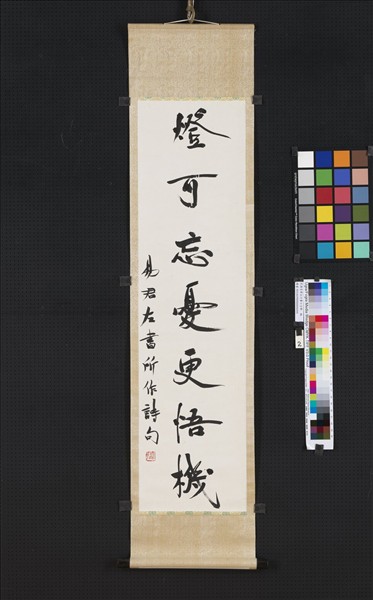 燈可忘憂更悟機
易君左書所作詩句